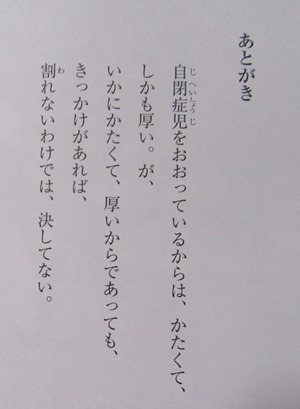 あとがき
自閉症児をおおっているからは、かたくて、
しかも厚い。が、
いかにかたくて、厚いからであっても、
きっかけがあれば、
割れないわけでは、決してない。